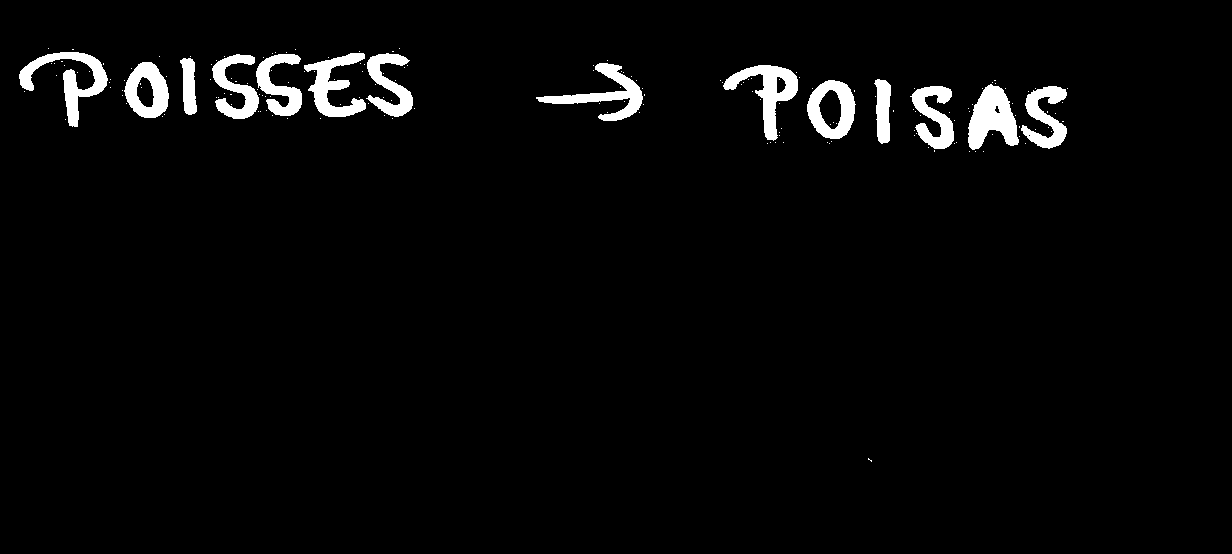 POISSES → POISAS